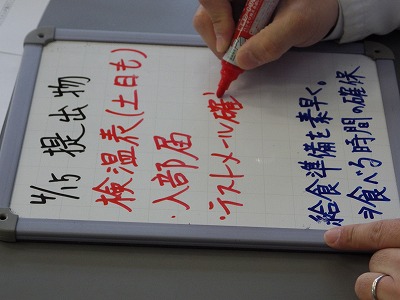 4/15 提出物
検温表(土日も)
・入部届
・テストメール確
給食準備を素早く。
⇒食べる時間の確保